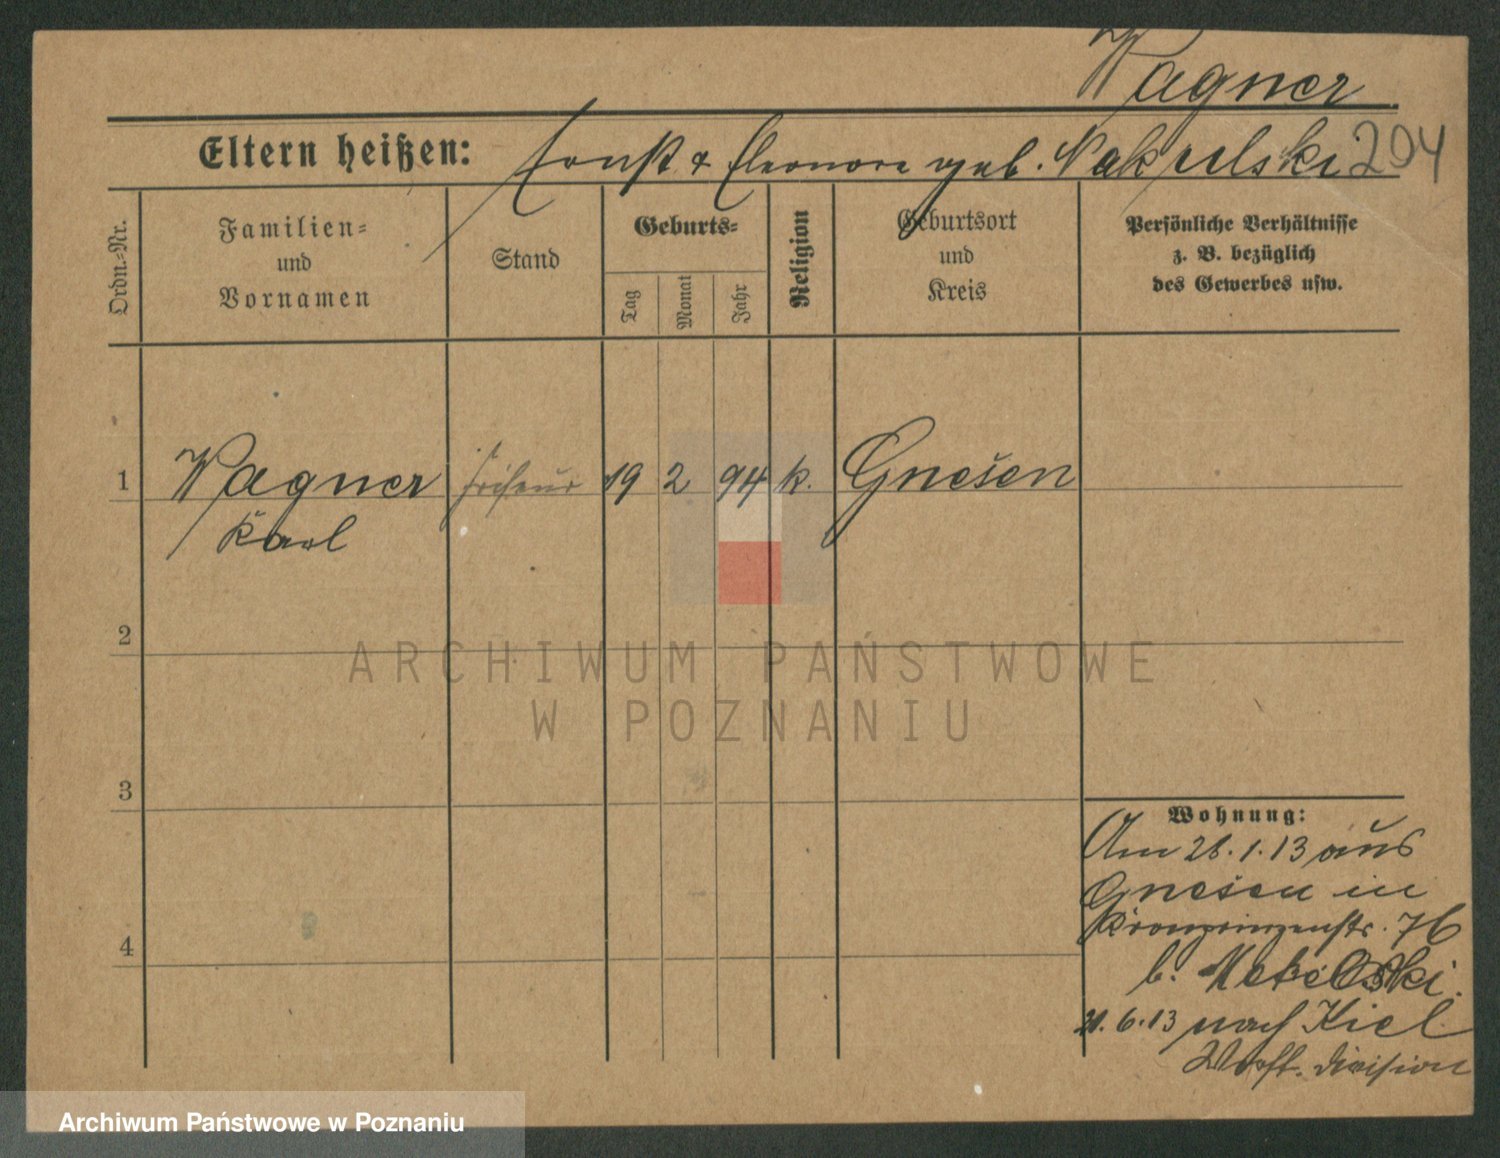 Wagner
Eltern heißen: Ernst & Eleonore geb. Nakielski 204
Ordn.-Nr.
Familien-
und
Vornamen
Stand
Geburts-
Tag
Monat
Jahr
Religion
Geburtsort
und
Kreis
Persönliche Verhältnisse
z. B. bezüglich
des Gewerbes usw.
1 Wagner Friseur 19 2 94 k. Gnesen
Karl
2
ARCHIWUM PAŃSTWOWE
W POZNANIU
3
4
Wohnung:
Am 28.1.13 aus
Gnesen in
Kronprinzenstr. 76
b.
21.6.13 nach Kiel
Werft. Division
Archiwum Państwowe w Poznaniu